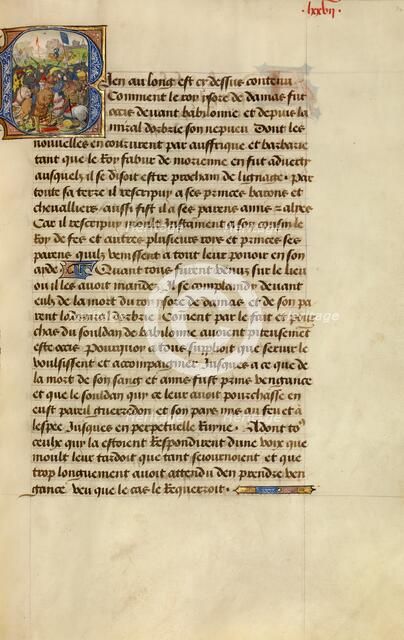 lxxbij
Bien au long est cy dessus contenu
Comment le roy ysore de damas fut
occis deuant babilonne et depuis la
miral dorbrie son nepueu Dont les
nouuelles en coururent par auffrique et barbarie
tant que le Roy fabur de morienne en fut aduerty
ausquelz il se disoit estre prochain de lignage · Par
toute sa terre il rescripuy a ses princes barons et
cheualliers aussi fist il a ses parens amis et aliez
Car il rescripuy moult instament a son cousin le
Roy de fes et autres plusieurs rois et princes ses
parens quilz venissent a tout leur pouoir en son
aide Quant tous furent venuz sur le lieu
ou il les auoit mandez Il se complaindy deuant
eulz de la mort du roy ysore de damas et de son pa
rent ladmiral dorbrie Coment par le fait et pour
chas du souldan de babilonne auoient piteusement
este occis Pourquoy a tous supplioit que seruir le
voulsissent et accompaigner Jusques a ce que de
la mort de son sang et amis fust prinse vengance
et que le souldan quy ce leur auoit pourchasse en
eust pareil guerredon et son pays mis au feu et a
lespee Jusques en perpetuelle Ruyne · Adont to9
ceulx quy la estoient Respondirent dune voix que
moult leur tardoit que tant seiournoient et que
trop longuement auoit attendu den prendre ven
gance veu que le cas le Requerroit ·
heritage